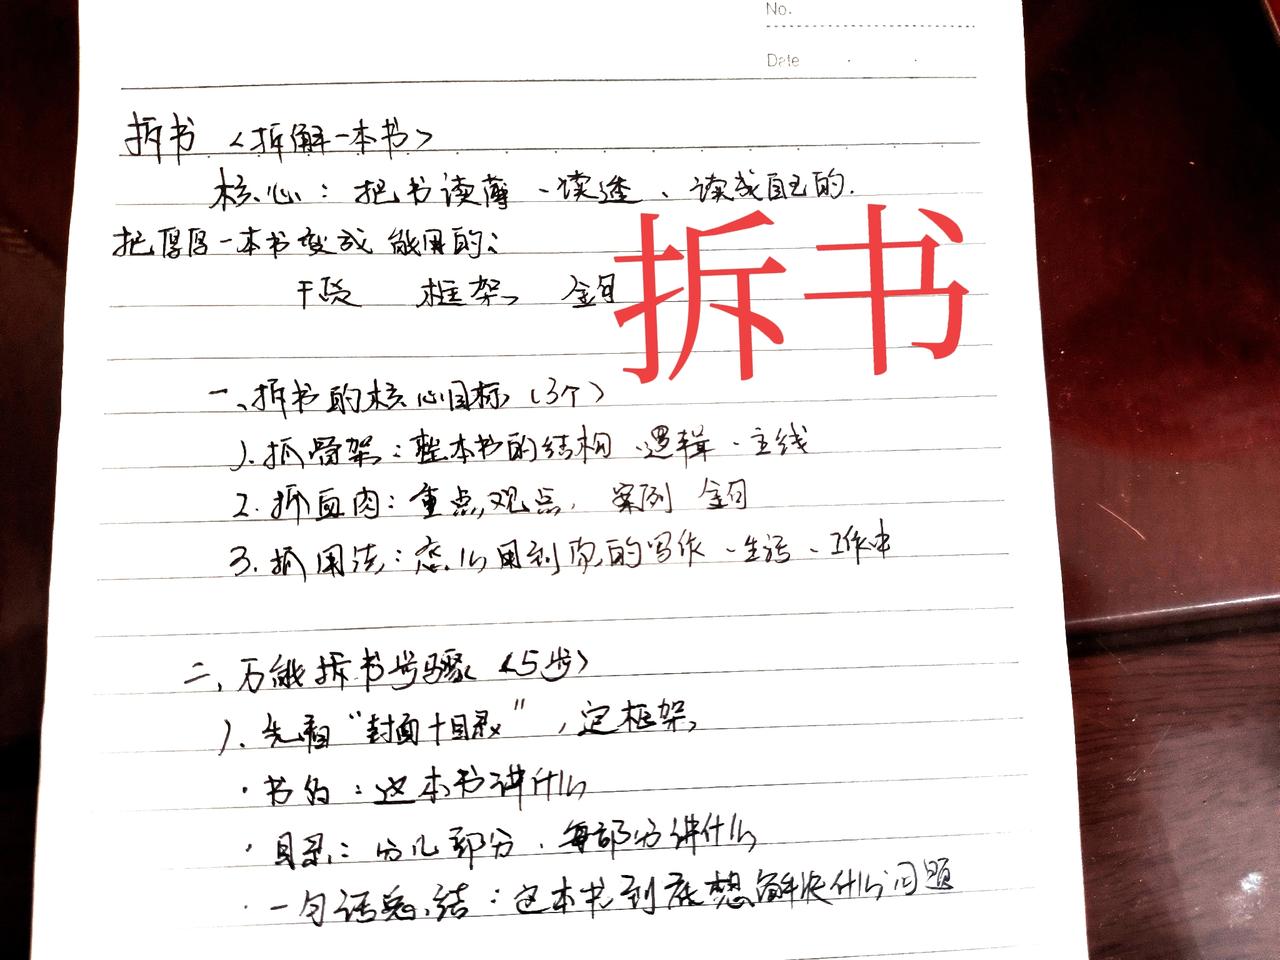 No.
Date
拆书〈拆解一本书〉
核心：把书读薄、读透、读成自己的.
把厚厚一本书变成能用的：
干货 框架 金句
拆书
一、拆书的核心目标(3个)
1.抓骨架：整本书的结构、逻辑、主线
2.抓血肉：重点观点，案例 金句
3.抓用法：怎么用到你的写作、生活、工作中
二、万能拆书步骤〈5步〉
1.先看“封面+目录”，定框架
·书名：这本书讲什么
·目录：分几部分，每部分讲什么
·一句话总结：这本书到底想解决什么问题